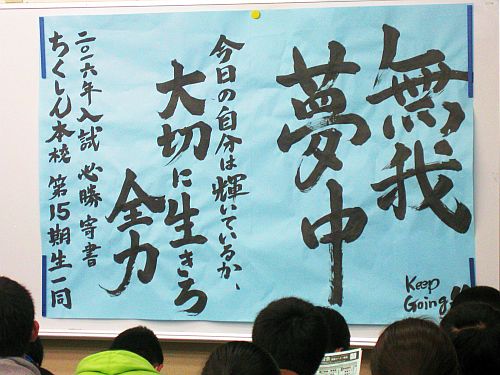 無我
夢中
今日の自分は輝いているか、
大切に生きろ
全力
二〇一六年入試 必勝寄書
ちくしん本校 第15期生一同
Keep
Going!!